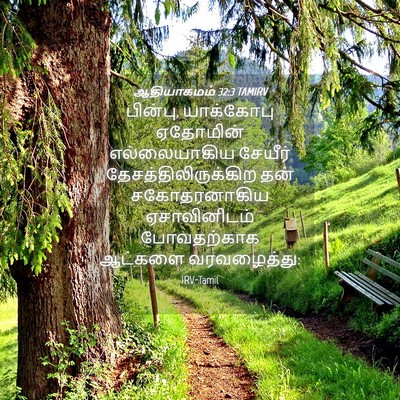 ஆதியாகமம் 32:3 TAMIRV
பின்பு, யாக்கோபு
ஏதோமின்
எல்லையாகிய சேயீர்
தேசத்திலிருக்கிற தன்
சகோதரனாகிய
ஏசாவினிடம்
போவதற்காக
ஆட்களை வரவழைத்து:
IRV-Tamil